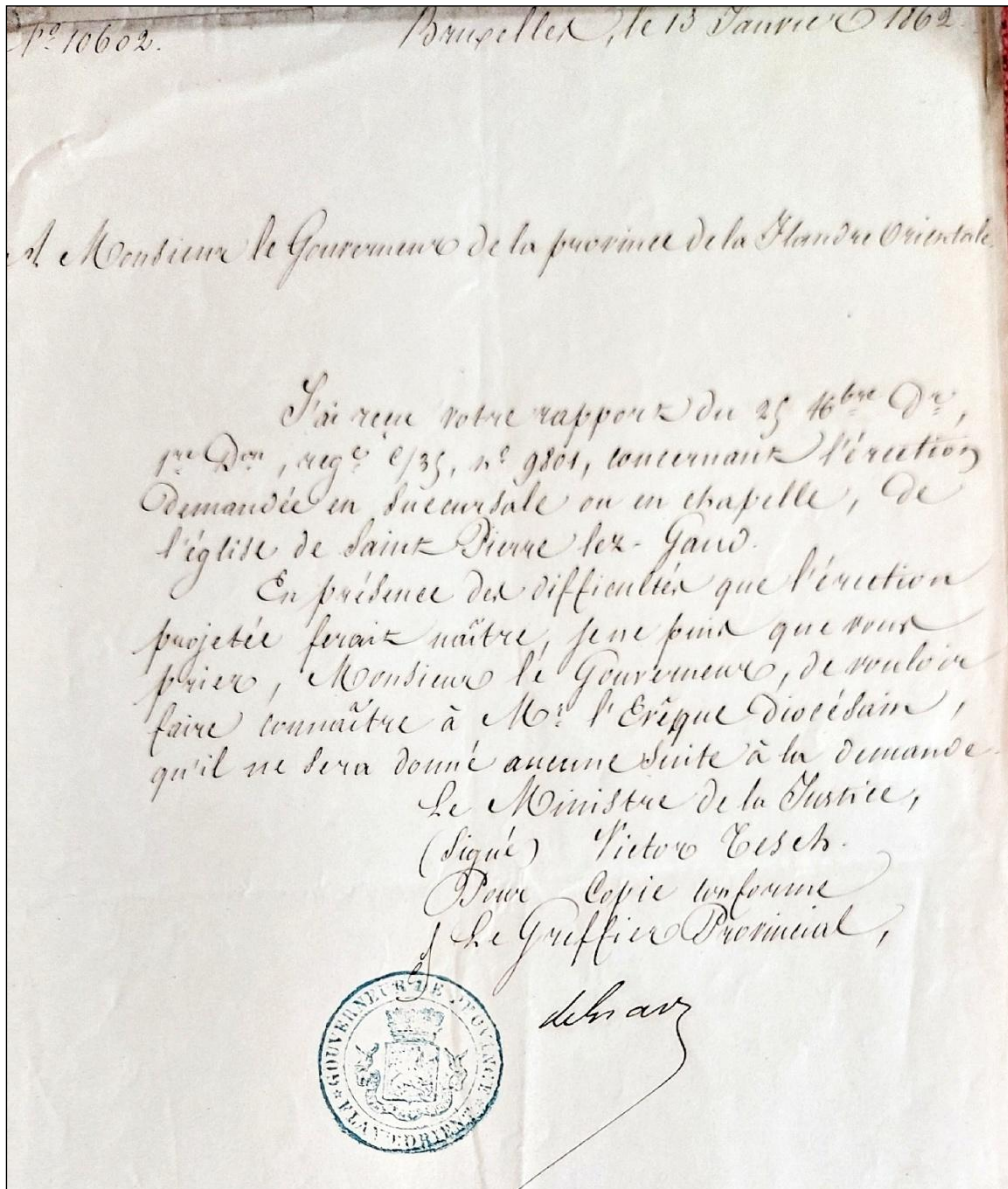 N° 10602.
Bruxelles, le 13 Janvier 1862.
A Monsieur le Gouverneur de la province de la Flandre Orientale.
J'ai reçu votre rapport du 25 Xbre Dr,
1re Don, reg° C/35, n° 9801, concernant l'érection
demandée en succursale ou en chapelle, de
l'église de Saint Pierre lez-Gand.
En présence des difficultés que l'érection
projetée ferait naître, je ne puis que vous
prier, Monsieur le Gouverneur, de vouloir
faire connaître à Mr l'Evêque Diocésain,
qu'il ne sera donné aucune suite à la demande.
Le Ministre de la Justice,
(Signé) Victor Tesch.
Pour Copie conforme
Le Greffier Provincial,
GOUVERNEUR DE PROVINCE
FLAND. ORIENT.